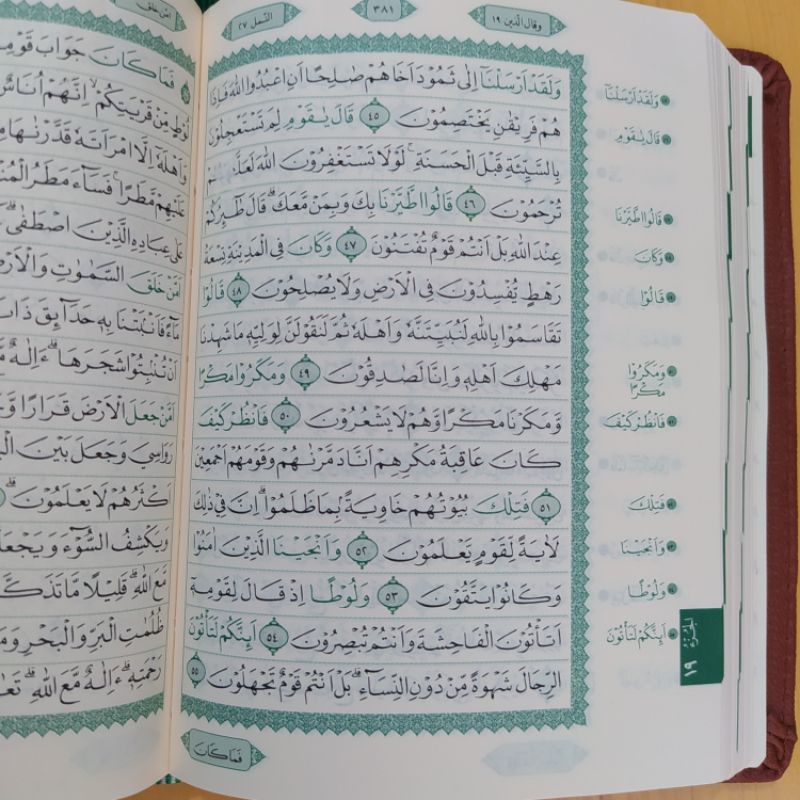 وقال الذين ١٩
٣٨١
النمل ٢٧
وَلَقَدْ اَرْسَلْنَٓا اِلٰى ثَمُودَ اَخَاهُمْ صَالِحًا اَنِ اعْبُدُوا اللّٰهَ فَاِذَا
هُمْ فَرِيقَانِ يَخْتَصِمُونَ ٤٥ قَالَ يَا قَوْمِ لِمَ تَسْتَعْجِلُونَ
بِالسَّيِّئَةِ قَبْلَ الْحَسَنَةِۚ لَوْلَا تَسْتَغْفِرُونَ اللّٰهَ لَعَلَّكُمْ
تُرْحَمُونَ ٤٦ قَالُوا اطَّيَّرْنَا بِكَ وَبِمَنْ مَعَكَۜ قَالَ طَٓائِرُكُمْ
عِنْدَ اللّٰهِ بَلْ اَنْتُمْ قَوْمٌ تُفْتَنُونَ ٤٧ وَكَانَ فِي الْمَدِينَةِ تِسْعَةُ
رَهْطٍ يُفْسِدُونَ فِي الْاَرْضِ وَلَا يُصْلِحُونَ ٤٨ قَالُوا
تَقَاسَمُوا بِاللّٰهِ لَنُبَيِّتَنَّهُ وَاَهْلَهُ ثُمَّ لَنَقُولَنَّ لِوَلِيِّهِ مَا شَهِدْنَا
مَهْلِكَ اَهْلِهِ وَاِنَّا لَصَادِقُونَ ٤٩ وَمَكَرُوا مَكْرًا
وَمَكَرْنَا مَكْرًا وَهُمْ لَا يَشْعُرُونَ ٥٠ فَانْظُرْ كَيْفَ
كَانَ عَاقِبَةُ مَكْرِهِمْ اَنَّا دَمَّرْنَاهُمْ وَقَوْمَهُمْ اَجْمَعِينَ
٥١ فَتِلْكَ بُيُوتُهُمْ خَاوِيَةً بِمَا ظَلَمُواۜ اِنَّ فِي ذٰلِكَ
لَاٰيَةً لِقَوْمٍ يَعْلَمُونَ ٥٢ وَاَنْجَيْنَا الَّذِينَ اٰمَنُوا
وَكَانُوا يَتَّقُونَ ٥٣ وَلُوطًا اِذْ قَالَ لِقَوْمِهِٓ
اَتَأْتُونَ الْفَاحِشَةَ وَاَنْتُمْ تُبْصِرُونَ ٥٤ اَئِنَّكُمْ لَتَأْتُونَ
الرِّجَالَ شَهْوَةً مِنْ دُونِ النِّسَٓاءِۜ بَلْ اَنْتُمْ قَوْمٌ تَجْهَلُونَ ٥٥
فَمَا كَانَ
وَلَقَدْ اَرْسَلْنَٓا
قَالَ يَا قَوْمِ
قَالُوا اطَّيَّرْنَا
وَكَانَ
قَالُوا
وَمَكَرُوا
مَكْرًا
فَانْظُرْ كَيْفَ
فَتِلْكَ
وَاَنْجَيْنَا
وَلُوطًا
اَئِنَّكُمْ لَتَأْتُونَ
الجزء ١٩
امن خلق
فَمَا كَانَ جَوَابَ قَوْمِهِ
لُوطٍ مِنْ قَرْيَتِكُمْۚ اِنَّهُمْ اُنَاسٌ
وَاَهْلَهُٓ اِلَّا امْرَاَتَهُ قَدَّرْنَاهَا
عَلَيْهِمْ مَطَرًاۚ فَسَٓاءَ مَطَرُ
عَلٰى عِبَادِهِ الَّذِينَ اصْطَفٰىۜ
اَمَّنْ خَلَقَ السَّمٰوَاتِ وَالْاَرْضَ
مَٓاءً فَاَنْبَتْنَا بِهِ حَدَٓائِقَ ذَاتَ
اَنْ تُنْبِتُوا شَجَرَهَاۜ ءَاِلٰهٌ
اَمَّنْ جَعَلَ الْاَرْضَ قَرَارًا
رَوَاسِيَ وَجَعَلَ بَيْنَ
اَكْثَرُهُمْ لَا يَعْلَمُونَ
وَيَكْشِفُ السُّٓوءَ وَيَجْعَلُكُمْ
مَعَ اللّٰهِۜ قَلِيلًا مَا تَذَكَّرُونَ
ظُلُمَاتِ الْبَرِّ وَالْبَحْرِ وَمَنْ
رَحْمَتِهِۜ ءَاِلٰهٌ مَعَ اللّٰهِۜ